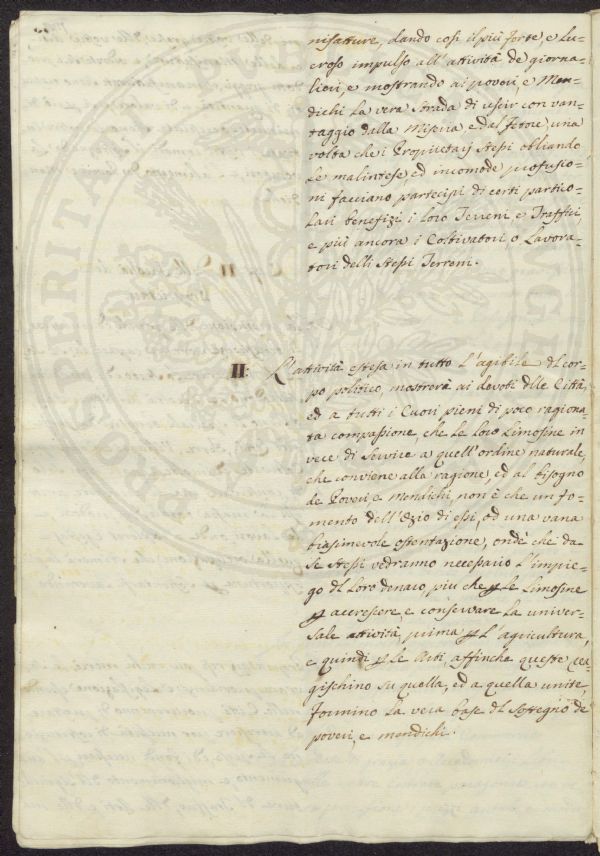 nifatture, dando così il più forte, e lu-
croso impulso all'attività de giorna-
lieri, e mostrando ai poveri, e Men-
dichi la vera strada di uscir con van-
taggio dalla Miseria e dal fetore, una
volta che i Proprietarj stessi obliando
le malintese, ed incomode profusio-
ni facciano partecipi di certi partico-
lari benefizi i loro Terreni e Traffici,
e più ancora i Coltivatori o Lavora-
tori delli stessi Terreni.
II: L'attività estesa in tutto l'agibile del cor-
po politico, mostrerà ai devoti delle Città,
ed a tutti i Cuori pieni di poco ragiona-
ta compassione, che le loro Limosine in
vece di servire a quell'ordine naturale,
che conviene alla ragione, ed al bisogno
de Poveri e Mendichi, non è che un fo-
mento dell'Ozio di essi, od una vana
biasimevole ostentazione, ondè che da
se stessi vedranno necessario l'impie-
go del loro denaro, più che p le Limosine
p accrescere, e conservare la univer-
sale attività, prima p l'agricultura,
e quindi p le Arti, affinchè queste
su quella, ed a quella unite,
formino la vera base del sostegno de
poveri, e mendichi.
PROSPERITATI PUBLICAE